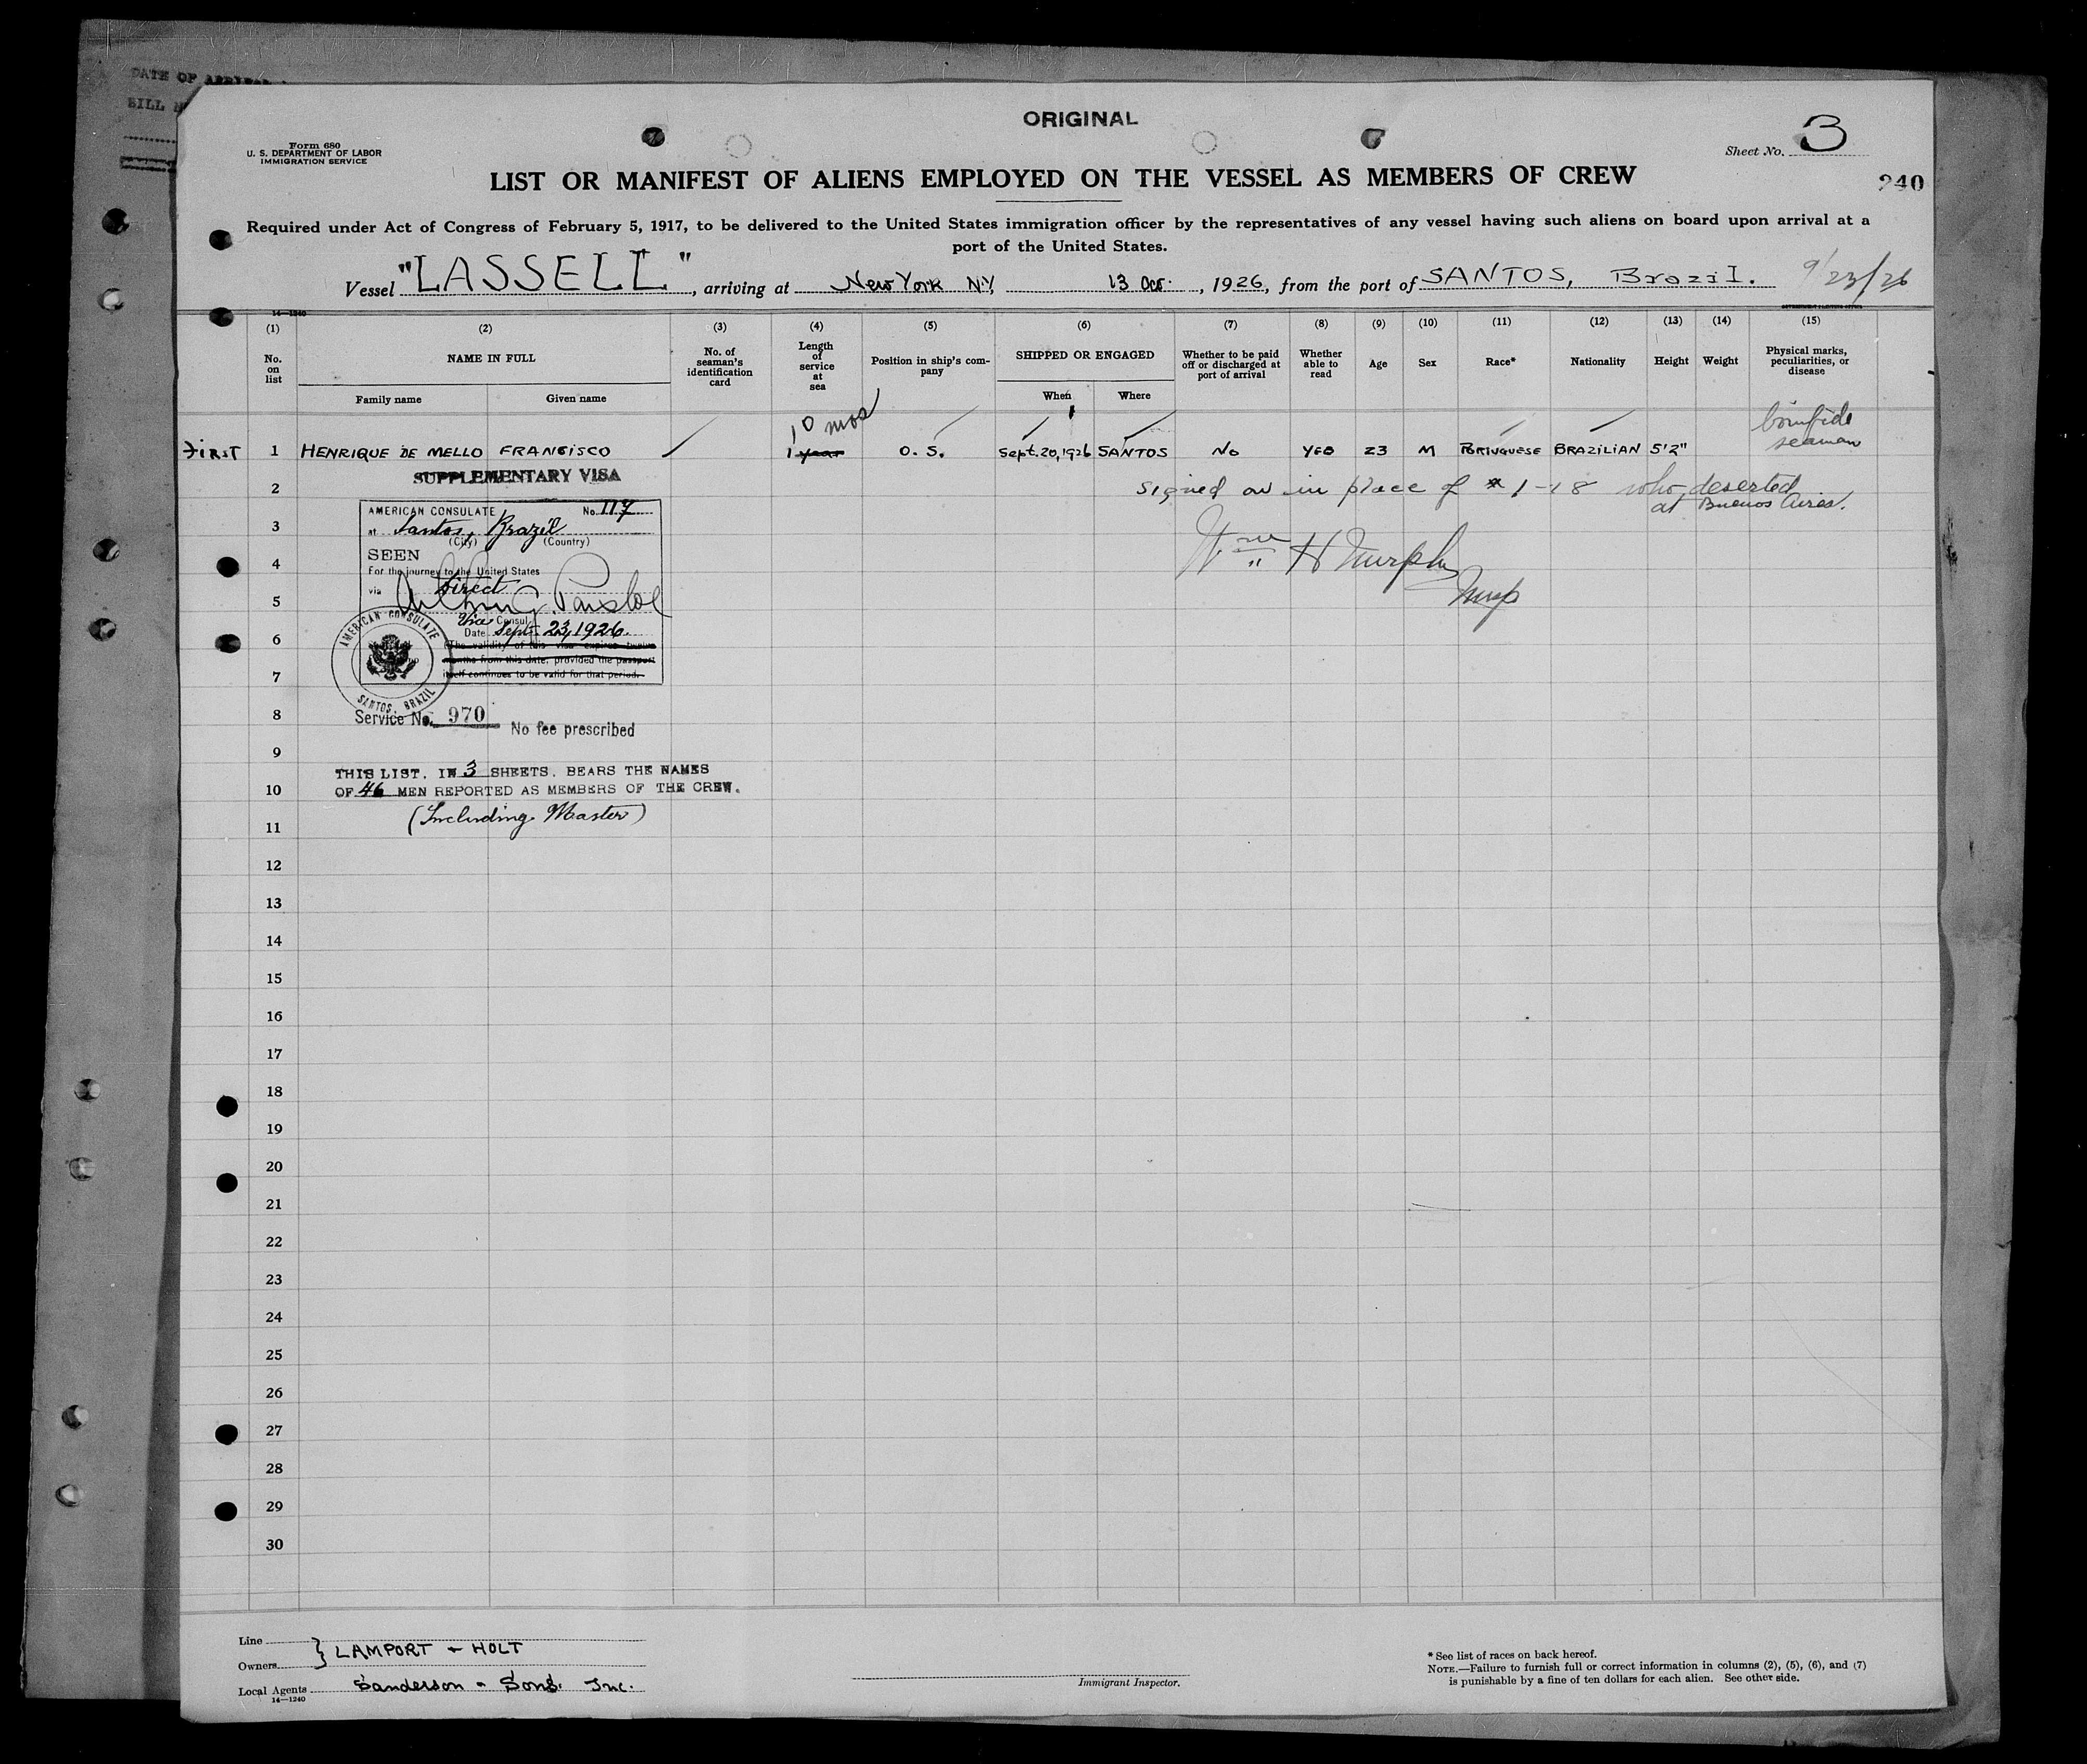 DATE OF ARRIVAL
BILL
ORIGINAL
Form 680
U. S. DEPARTMENT OF LABOR
IMMIGRATION SERVICE
Sheet No. 3
LIST OR MANIFEST OF ALIENS EMPLOYED ON THE VESSEL AS MEMBERS OF CREW
240
Required under Act of Congress of February 5, 1917, to be delivered to the United States immigration officer by the representatives of any vessel having such aliens on board upon arrival at a
port of the United States.
Vessel "LASSELL", arriving at New York N.Y, 13 Oct., 1926, from the port of SANTOS, Brazil. 9/23/26
14—1240
(1) (2) (3) (4) (5) (6) (7) (8) (9) (10) (11) (12) (13) (14) (15)
No. on list
NAME IN FULL
Family name Given name
No. of seaman's identification card
Length of service at sea
Position in ship's company
SHIPPED OR ENGAGED
When Where
Whether to be paid off or discharged at port of arrival
Whether able to read
Age
Sex
Race*
Nationality
Height
Weight
Physical marks, peculiarities, or disease
10 mos bonifide
FIRST 1 HENRIQUE DE MELLO FRANCISCO 1 year O. S. Sept. 20, 1926 SANTOS No YES 23 M PORTUGUESE BRAZILIAN 5'2" seaman
SUPPLEMENTARY VISA
2 Signed on in place of # 1-18 who deserted
at Buenos Aires.
AMERICAN CONSULATE No. 117
3 at Santos, Brazil
(City) (Country)
SEEN
Wm H Murphy
4
For the journey to the United States
via Direct
5
Vice Consul
Date Sept. 23, 1926.
6
The validity of this visa expires twelve
months from this date, provided the passport
itself continues to be valid for that period.
AMERICAN CONSULATE
SANTOS, BRAZIL
7
8
Service No. 970 No fee prescribed
9
THIS LIST, IN 3 SHEETS, BEARS THE NAMES
10 OF 46 MEN REPORTED AS MEMBERS OF THE CREW.
(Including Master)
11
12
13
14
15
16
17
18
19
20
21
22
23
24
25
26
27
28
29
30
Line
Owners } LAMPORT & HOLT
Local Agents Sanderson & Sons. Inc.
14—1240
Immigrant Inspector.
* See list of races on back hereof.
NOTE.—Failure to furnish full or correct information in columns (2), (5), (6), and (7)
is punishable by a fine of ten dollars for each alien. See other side.